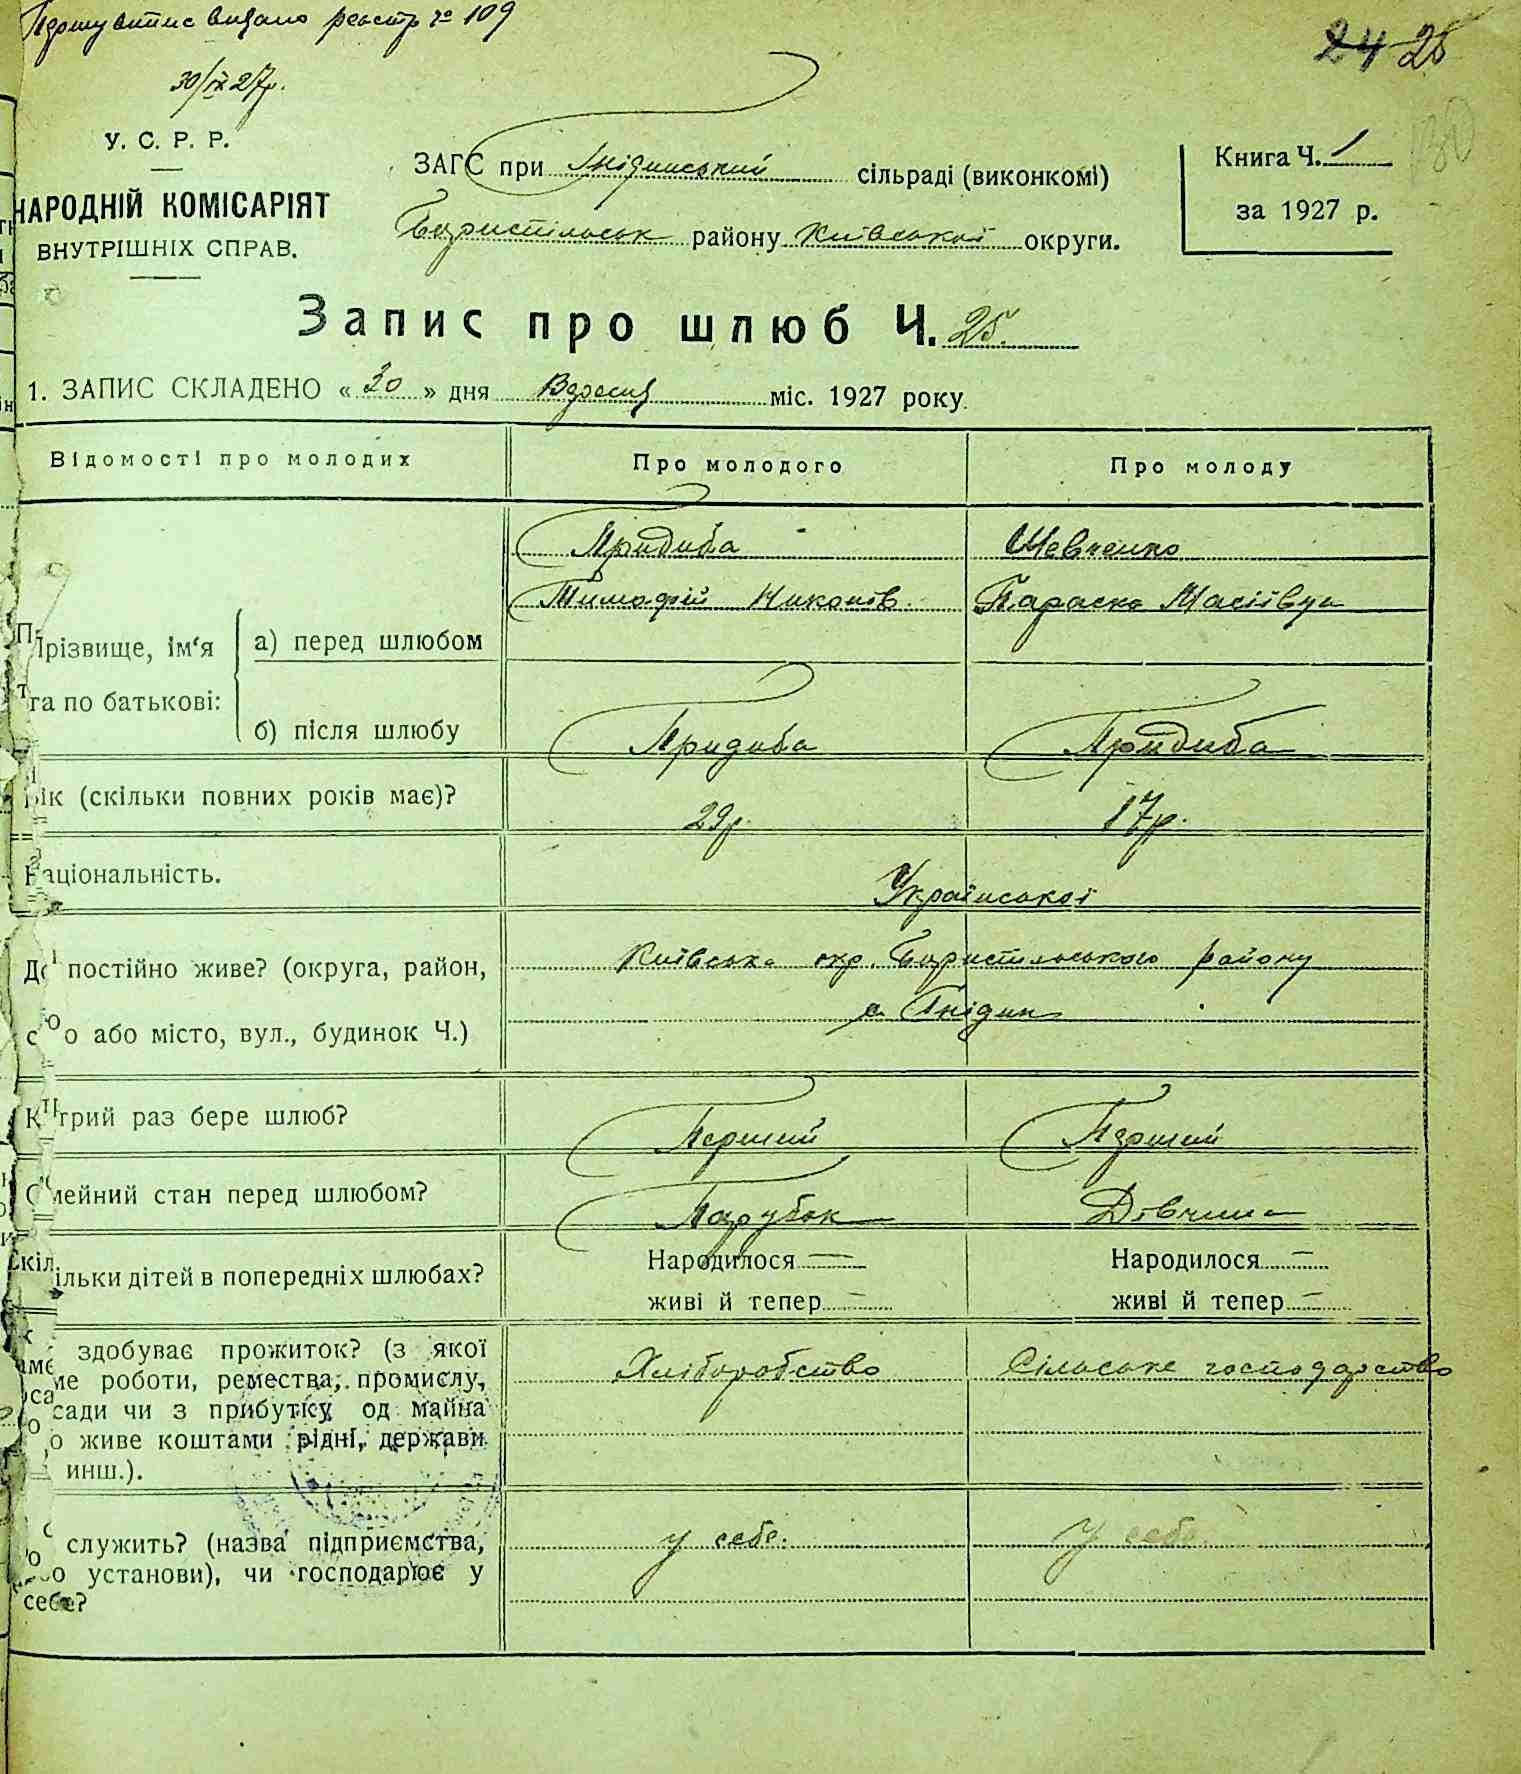 Першу витис видано реєстр № 109
30/IX 27р.
24 25
У. С. Р. Р.
НАРОДНІЙ КОМІСАРІЯТ
ВНУТРІШНІХ СПРАВ.
ЗАГС при Гнідинський сільраді (виконкомі)
Бориспільськ району Київської округи.
Книга Ч. 1
за 1927 р.
Запис про шлюб Ч. 25.
1. ЗАПИС СКЛАДЕНО « 30 » дня Вересня міс. 1927 року
Відомості про молодих Про молодого Про молоду
Придиба Шевченко
Тимофій Никонів. Параска Масіївна
Прізвище, ім'я та по батькові:
а) перед шлюбом
б) після шлюбу Придиба Придиба
Вік (скільки повних років має)? 29р. 17р.
Національність. Української
Де постійно живе? (округа, район, Київська окр. Бориспільського району
село або місто, вул., будинок Ч.) с. Гнідин
Котрий раз бере шлюб? Перший Перший
Семейний стан перед шлюбом? Парубок Дівчина
Скільки дітей в попередніх шлюбах? Народилося — Народилося —
живі й тепер — живі й тепер —
здобуває прожиток? (з якої Хліборобство Сільське господарство
ме роботи, ремества, промислу,
сади чи з прибутку од майна
о живе коштами рідні, держави
инш.).
служить? (назва підприємства, у себе. у себе.
о установи), чи господарює у
себе?